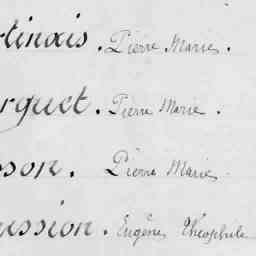 tinais. Pierre Marie.
rguet. Pierre Marie.
sson. Pierre Marie
ussion. Eugène Théophile